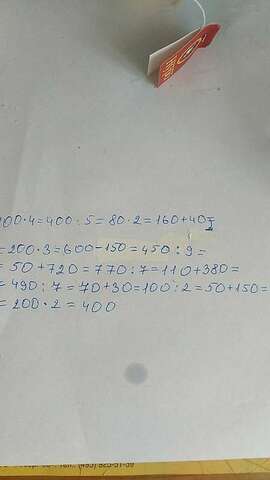 100·4=400:5=80·2=160+40=
=200·3=600-150=450:9=
=50+720=770:7=110+380=
=490:7=70+30=100:2=50+150=
=200·2=400